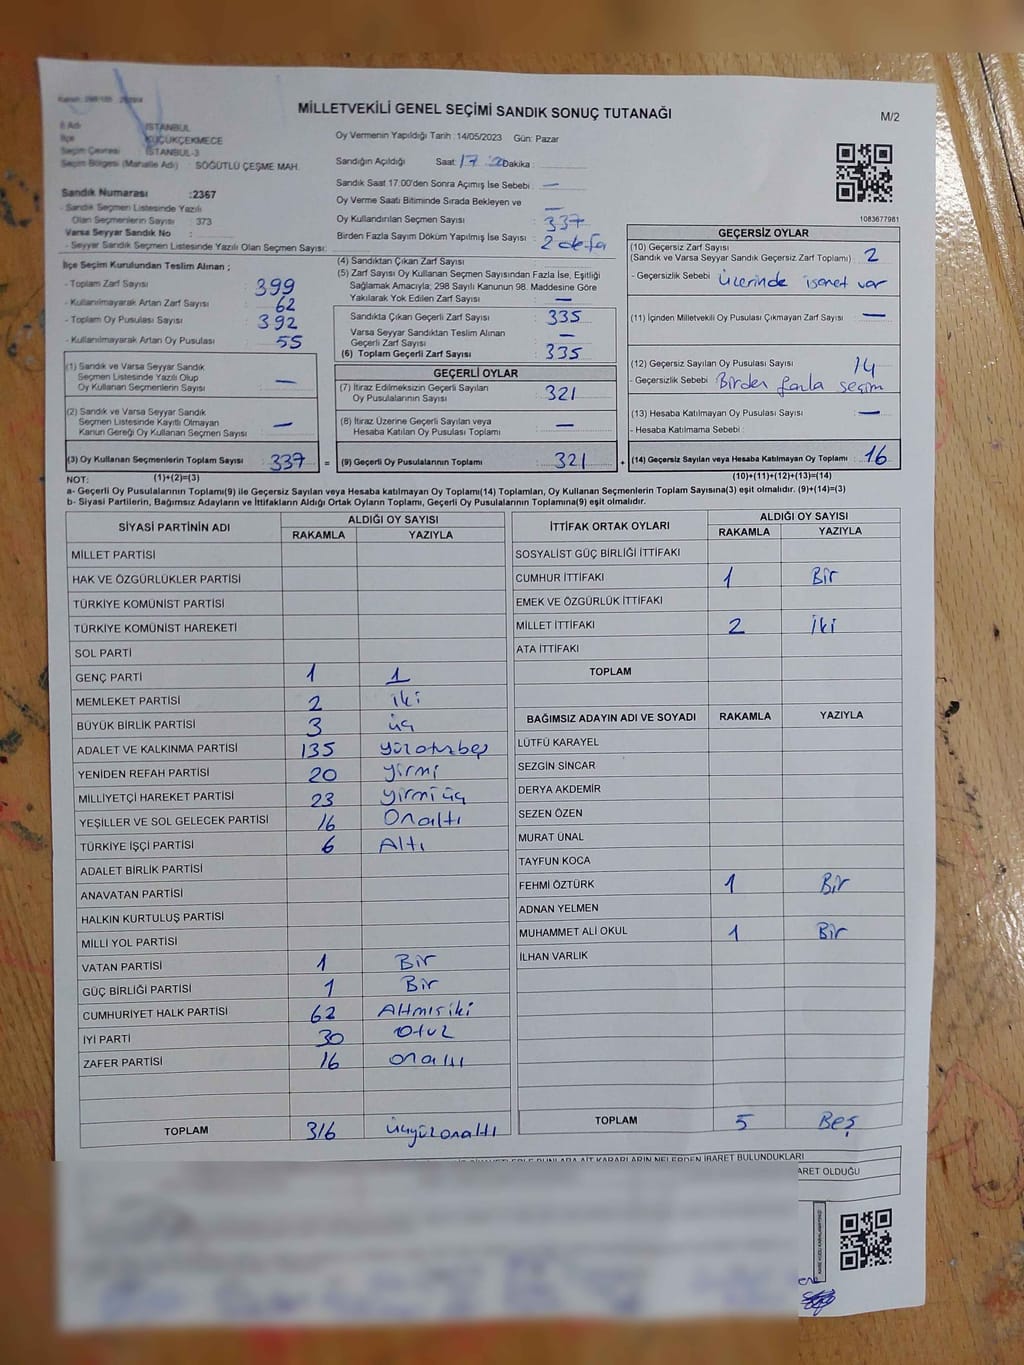 MİLLETVEKİLİ GENEL SEÇİMİ SANDIK SONUÇ TUTANAĞI
M/2
İl Adı : İSTANBUL
İlçe : KÜÇÜKÇEKMECE
Seçim Çevresi : İSTANBUL-3
Seçim Bölgesi (Mahalle Adı) : SÖĞÜTLÜ ÇEŞME MAH.
Sandık Numarası :2367
- Sandık Seçmen Listesinde Yazılı
Olan Seçmenlerin Sayısı : 373
Varsa Seyyar Sandık No :
- Seyyar Sandık Seçmen Listesinde Yazılı Olan Seçmen Sayısı:
Oy Vermenin Yapıldığı Tarih :14/05/2023 Gün: Pazar
Sandığın Açıldığı Saat: 17 Dakika :
Sandık Saat 17.00'den Sonra Açımış İse Sebebi : —
Oy Verme Saati Bitiminde Sırada Bekleyen ve —
Oy Kullandırılan Seçmen Sayısı : 337
Birden Fazla Sayım Döküm Yapılmış İse Sayısı : 2 defa
1083677981
İlçe Seçim Kurulundan Teslim Alınan ;
- Toplam Zarf Sayısı : 399
- Kullanılmayarak Artan Zarf Sayısı : 62
- Toplam Oy Pusulası Sayısı : 392
- Kullanılmayarak Artan Oy Pusulası : 55
(1) Sandık ve Varsa Seyyar Sandık
Seçmen Listesinde Yazılı Olup
Oy Kullanan Seçmenlerin Sayısı : —
(2) Sandık ve Varsa Seyyar Sandık
Seçmen Listesinde Kayıtlı Olmayan
Kanun Gereği Oy Kullanan Seçmen Sayısı : —
(3) Oy Kullanan Seçmenlerin Toplam Sayısı : 337
(1)+(2)=(3)
(4) Sandıktan Çıkan Zarf Sayısı
(5) Zarf Sayısı Oy Kullanan Seçmen Sayısından Fazla İse, Eşitliği
Sağlamak Amacıyla; 298 Sayılı Kanunun 98. Maddesine Göre
Yakılarak Yok Edilen Zarf Sayısı : —
Sandıkta Çıkan Geçerli Zarf Sayısı : 335
Varsa Seyyar Sandıktan Teslim Alınan
Geçerli Zarf Sayısı : —
(6) Toplam Geçerli Zarf Sayısı : 335
GEÇERLİ OYLAR
(7) İtiraz Edilmeksizin Geçerli Sayılan
Oy Pusulalarının Sayısı : 321
(8) İtiraz Üzerine Geçerli Sayılan veya
Hesaba Katılan Oy Pusulası Toplamı : —
= (9) Geçerli Oy Pusulalarının Toplamı : 321
GEÇERSİZ OYLAR
(10) Geçersiz Zarf Sayısı
(Sandık ve Varsa Seyyar Sandık Geçersiz Zarf Toplamı) : 2
- Geçersizlik Sebebi : üzerinde işaret var
(11) İçinden Milletvekili Oy Pusulası Çıkmayan Zarf Sayısı : —
(12) Geçersiz Sayılan Oy Pusulası Sayısı : 14
- Geçersizlik Sebebi : Birden fazla seçim
(13) Hesaba Katılmayan Oy Pusulası Sayısı : —
- Hesaba Katılmama Sebebi :
+ (14) Geçersiz Sayılan veya Hesaba Katılmayan Oy Toplamı : 16
(10)+(11)+(12)+(13)=(14)
NOT:
a- Geçerli Oy Pusulalarının Toplamı(9) ile Geçersiz Sayılan veya Hesaba katılmayan Oy Toplamı(14) Toplamları, Oy Kullanan Seçmenlerin Toplam Sayısına(3) eşit olmalıdır. (9)+(14)=(3)
b- Siyasi Partilerin, Bağımsız Adayların ve İttifakların Aldığı Ortak Oyların Toplamı, Geçerli Oy Pusulalarının Toplamına(9) eşit olmalıdır.
SİYASİ PARTİNİN ADI ALDIĞI OY SAYISI
RAKAMLA YAZIYLA
MİLLET PARTİSİ
HAK VE ÖZGÜRLÜKLER PARTİSİ
TÜRKİYE KOMÜNİST PARTİSİ
TÜRKİYE KOMÜNİST HAREKETİ
SOL PARTİ
GENÇ PARTİ 1 1
MEMLEKET PARTİSİ 2 iki
BÜYÜK BİRLİK PARTİSİ 3 üç
ADALET VE KALKINMA PARTİSİ 135 yüzotuzbeş
YENİDEN REFAH PARTİSİ 20 yirmi
MİLLİYETÇİ HAREKET PARTİSİ 23 yirmi üç
YEŞİLLER VE SOL GELECEK PARTİSİ 16 Onaltı
TÜRKİYE İŞÇİ PARTİSİ 6 Altı
ADALET BİRLİK PARTİSİ
ANAVATAN PARTİSİ
HALKIN KURTULUŞ PARTİSİ
MİLLİ YOL PARTİSİ
VATAN PARTİSİ 1 Bir
GÜÇ BİRLİĞİ PARTİSİ 1 Bir
CUMHURİYET HALK PARTİSİ 62 Altmışiki
İYİ PARTİ 30 Otuz
ZAFER PARTİSİ 16 onaltı
TOPLAM 316 üçyüzonaltı
İTTİFAK ORTAK OYLARI ALDIĞI OY SAYISI
RAKAMLA YAZIYLA
SOSYALİST GÜÇ BİRLİĞİ İTTİFAKI
CUMHUR İTTİFAKI 1 Bir
EMEK VE ÖZGÜRLÜK İTTİFAKI
MİLLET İTTİFAKI 2 İki
ATA İTTİFAKI
TOPLAM
BAĞIMSIZ ADAYIN ADI VE SOYADI RAKAMLA YAZIYLA
LÜTFÜ KARAYEL
SEZGİN SİNCAR
DERYA AKDEMİR
SEZEN ÖZEN
MURAT ÜNAL
TAYFUN KOCA
FEHMİ ÖZTÜRK 1 Bir
ADNAN YELMEN
MUHAMMET ALİ OKUL 1 Bir
İLHAN VARLIK
TOPLAM 5 Beş
BUNLARA AİT KARARLARIN NELERDEN İBARET BULUNDUKLARI
ARET OLDUĞU